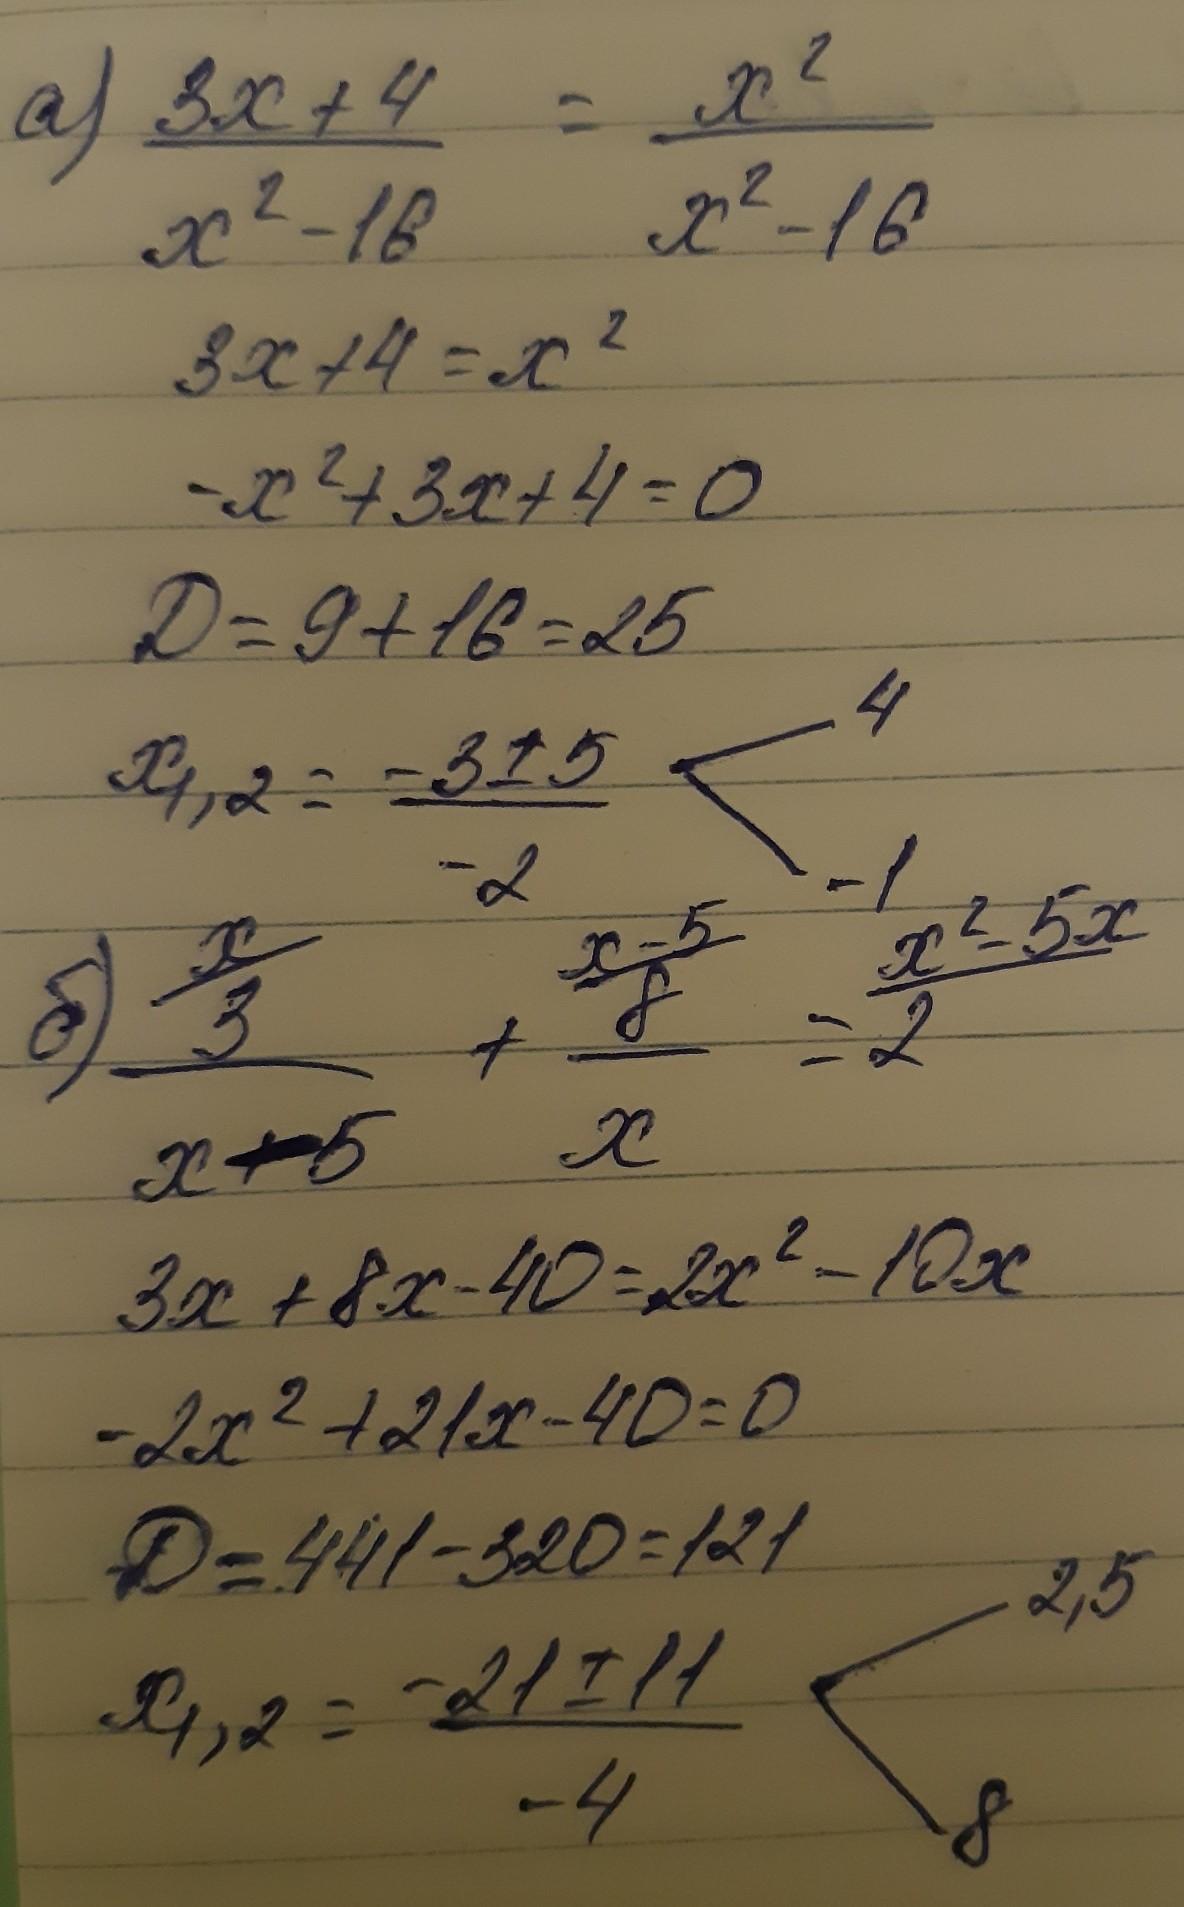 а) (3x+4)/(x²-16) = x²/(x²-16)
3x+4=x²
-x²+3x+4=0
D=9+16=25
x₁,₂ = (-3±5)/-2 < 4
-1
б) x/3/(x-5) + x-5/8/x = x²-5x/2
3x+8x-40=2x²-10x
-2x²+21x-40=0
D=441-320=121
x₁,₂ = (-21±11)/-4 < 2,5
8